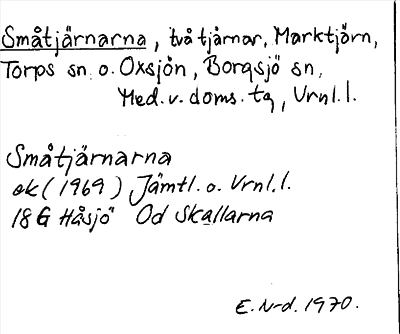 Småtjärnarna, två tjärnar, Marktjärn,
Torps sn o. Oxsjön, Borgsjö sn,
Med. v. doms. tg, Vrnl. l.
Småtjärnarna
ek (1969) Jämtl. o. Vrnl. l.
18 G Håsjö Od Skallarna
E. N-d. 1970.